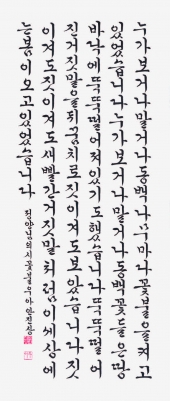 누가 보거나 말거나 동백나무마다 꽃불을 켜고
있었습니다 누가 보거나 말거나 동백꽃들은 땅
바닥에 뚝뚝 떨어져 있기도 했습니다 뚝뚝 떨어
진 거짓말을 뒤꿈치로 짓이겨도 보았습니다 짓
이겨도 짓이겨도 새빨간 거짓말처럼 이 세상에
는 봄이 오고 있었습니다
정양님의 시 꽃불을